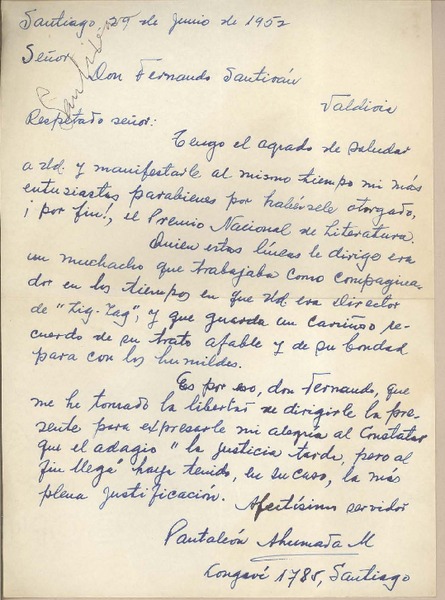 Santiago 29 de junio de 1952
Señor
Don Fernando Santiván
Valdivia
Respetado señor:
Tengo el agrado de saludar
a Ud. y manifestarle al mismo tiempo mi más
entusiastas parabienes por habérsele otorgado,
¡por fin!, el Premio Nacional de Literatura.
Quien estas líneas le dirige era
un muchacho que trabajaba como compagina-
dor en los tiempos en que Ud. era Director
de "Zig-Zag", y que guarda un cariñoso re-
cuerdo de su trato afable y de su bondad
para con los humildes.
Es por eso, don Fernando, que
me he tomado la libertad de dirigirle la pre-
sente para expresarle mi alegría al constatar
que el adagio "la justicia tarda, pero al
fin llega" haya tenido, en su caso, la más
plena justificación.
Afectísimo servidor
Pantaleón Ahumada M
Longaví 1785, Santiago